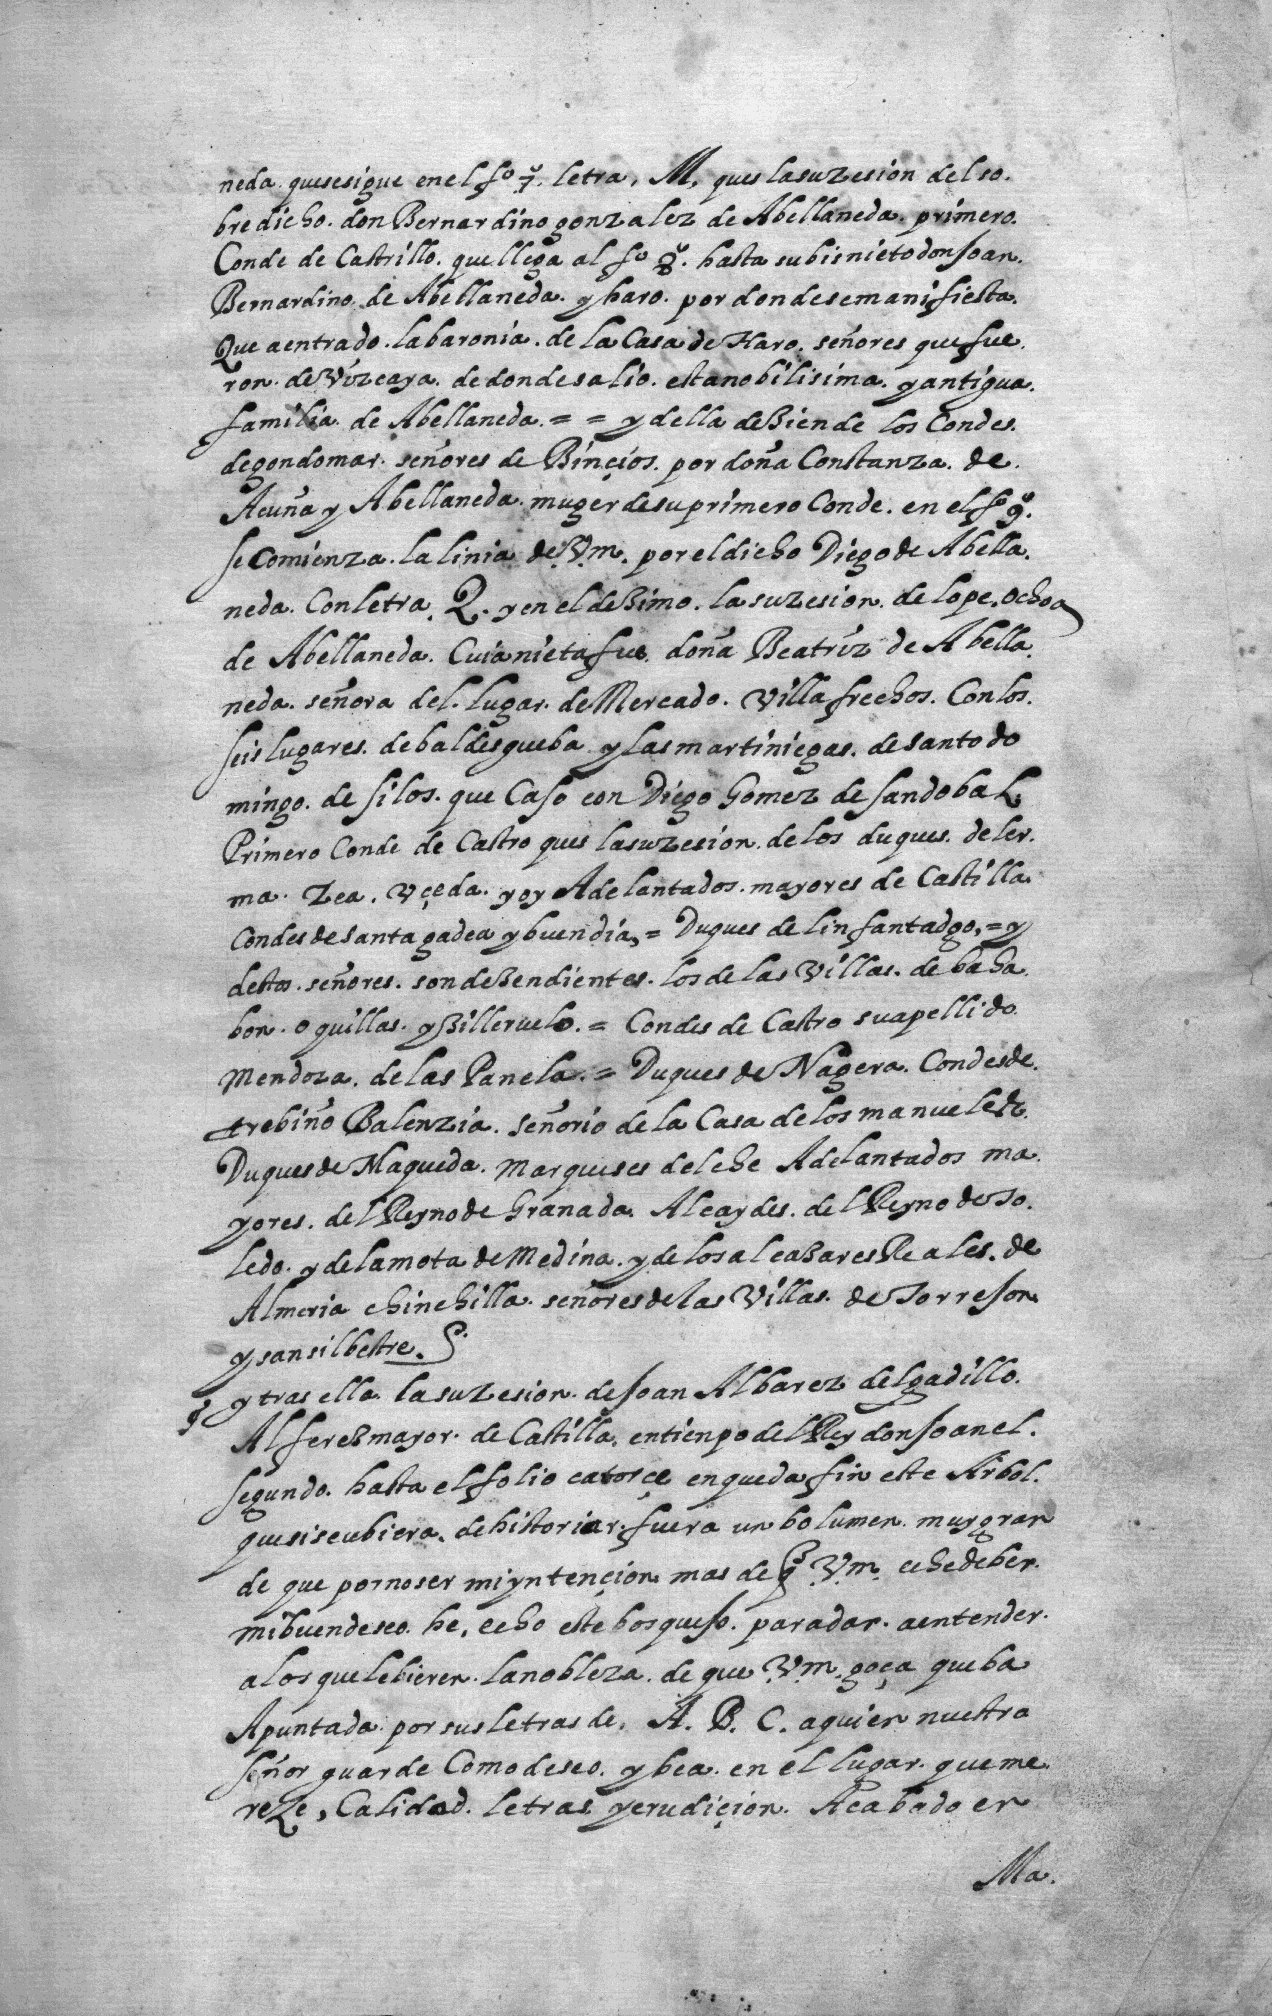 neda. quesesigue enel fo 7. letra, M, ques lasuzesion del so.
bredicho. don Bernardino gonzalez de Abellaneda. primero.
Conde de Castrillo. quellega al fo 8. hasta subisnieto don Joan.
Bernardino de Abellaneda. y haro. por dondesemanifiesta.
Que aentrado. labaronia. de la Casa de Haro. señores que fue.
ron. de Vizcaya. de dondesalio. estanobilisima. y antigua.
familia de Abellaneda. = = y della deBiende los Condes.
degondomar. señores de Binçios. por doña Constanza. de.
Acuña y Abellaneda. muger desuprimero Conde. en el fo 9.
se Comienza. la linia de Vm. por eldicho Diego de Abella.
neda. Conletra. Q. y en el deBimo. la suzesion. de lope. ochoa
de Abellaneda. Cuianieta fue. doña Beatriz de Abella.
neda. señora del. lugar. de Mercado. Villafrechos. Con los.
seis lugares. debaldesgueba y las martiniegas. de santo do
mingo. de silos. que Caso con Diego Gomez de sandobal
Primero Conde de Castro ques lasuzesion. de los duques. deler.
ma. Zea. Vçeda. y oy Adelantados. mayores de Castilla.
Condes de santagadea y buendia, = Duques de linfantadgo, = y
destos. señores. son deBendientes. los de las Villas. de baha
bon. oquillas. y Billeruelo. = Condes de Castro suapellido
Mendoza. de las Panela. = Duques de Nagera. Condes de.
trebiño Balenzia. señorio de la Casa de los manueles.
Duques de Maqueda. Marqueses delche Adelantados ma.
yores. del Reyno de Granada. Alcaydes. del Reyno de To.
ledo. y delamota de Medina. y de los alcaBares Reales. de
Almeria chinchilla. señores de las Villas. de Torrejon
y sansilbestre.
y tras ella la suzesion. de Joan Albarez delgadillo.
AlfereBmayor. de Castilla. entienpo del Rey don Joan el.
segundo. hasta el folio catorçe enqueda fin este Arbol.
que si seubiera. dehistoriar. fuera un bolumen. muy gran
de que pornoser mi yntençion mas de q Vm. eche de ber.
mibuendeseo. he, echo este bosquejo. paradar. aentender.
alos quelebieren. lanobleza. de que Vm. goça queba
Apuntada por susletras de. A. B. C. aquien nuestro
señor guarde Comodeseo. y bea. en el lugar. queme.
reze, Calidad. letras yerudiçion. Acabado en
Ma.